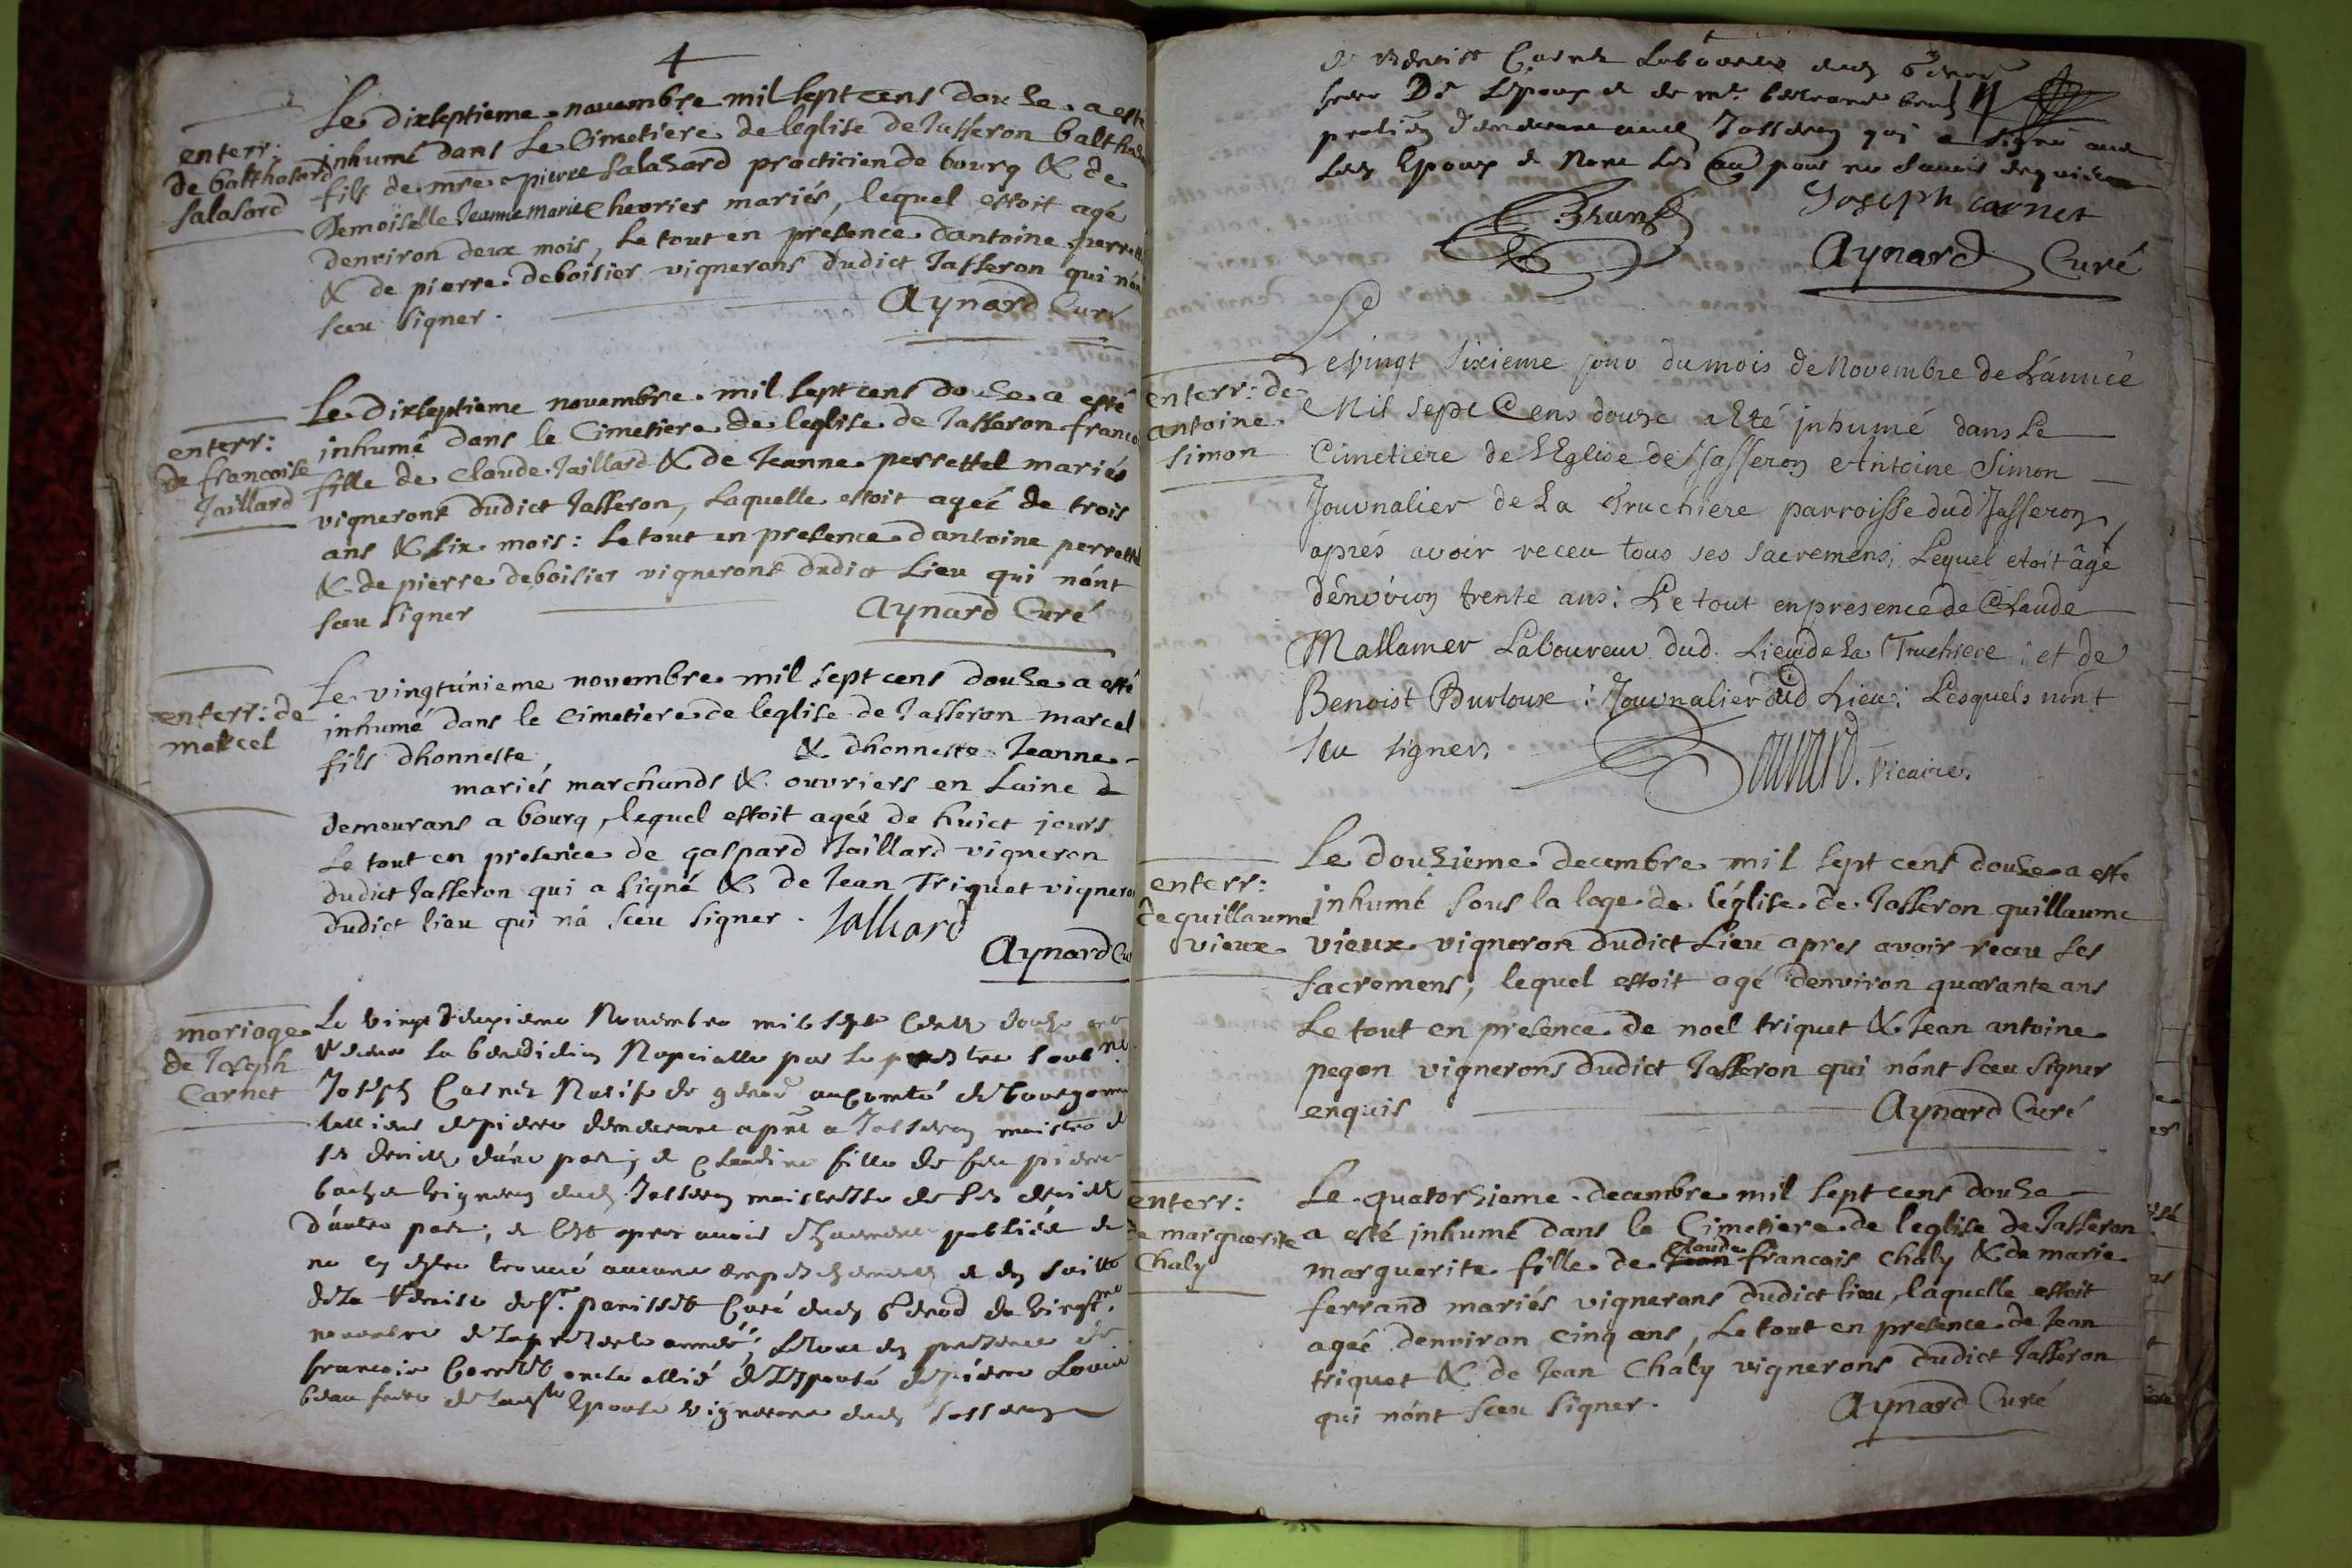 4
enterr:
de balthasard
salasard
Le dixseptieme novembre mil sept cens douze a esté
inhumé dans Le Cimetiere de leglise de Jasseron balthasa
fils de mre pierre salasard practicien de bourg & de
Demoiselle Jeanne Marie Chevrier mariés, lequel estoit agé
denviron deux mois, Le tout en presence dantoine perret
& de pierre deboisier vignerons dudict Jasseron qui nón
sceu signer.
Aynard Curé
enterr:
de francoise
Jaillard
Le dixseptieme novembre mil sept cens douze a esté
inhumé dans le Cimetiere de leglise de Jasseron franco
fille de Claude Jaillard & de Jeanne perrettel mariés
vignerons dudict Jasseron, Laquelle estoit ageé de trois
ans & six mois: Le tout en presence dantoine perrette
& de pierre deboisier vignerons dudict Lieu qui nónt
sceu signer
Aynard Curé
enterr: de
marcel
Le vingtunieme novembre mil sept cens douze a esté
inhumé dans le cimetiere de leglise de Jasseron marcel
fils dhonneste & dhonneste Jeanne
mariés marchands & ouvriers en Laine
demeurans a bourg, lequel estoit agée de huict jours
Le tout en presence de gaspard Jaillard vigneron
dudict Jasseron qui a signé & de Jean Triquet vignero
dudict lieu qui nà sceu signer.
Jalliard
Aynard Cu
mariage
de Joseph
Carnet
Le vingt deuxieme Novembre mil sept cents douze ont
receu la benediction Nuptialle par le prestre soubné
Joseph Carnet Natif de au Comté de bourgogne
tallieur de pierre demeurant a Jasseron maistre de
ses droicts d'une part; et Claudine fille de feu pierre
vigneron dud Jasseron maistresse de ses droicts
d'autre part; et apres avoir publiée et
ne sy estre trouvé aucune empeschement et en suitte
de la Remise de sr. perisset Curé dud de vingt
novembre de la presente année; Le tout en presence de
francois oncle allié de Lespouse de pierre Louis
beau frere de Epouse vignerons dud Jasseron
de Benoist Carnet Laboureur dud
frere De Lepoux et de mr. bertrand
praticien demeurant aud Jasseron qui a signé avec
Led Epoux et Non Les au pour ne scavoir enquis
Brunet
Joseph carnet
Aynard Curé
enterr: de
antoine
simon
Le vingt sixieme jour du mois de Novembre de L'année
Mil sept Cens douze a Eté jnhumé dans Le
Cimetiere de l'Eglise de Jasseron Antoine Simon
Journalier de La Truchiere parroisse dud Jasseron
aprés avoir receu tous ses sacremens; Lequel etoit âgé
d'environ trente ans: Le tout en presence de Claude
Mallamer Laboureur dud. Lieu de La Truchiere; et de
Benoist Burloux: Journalier dud Lieu: Lesquels nónt
sceu signer.
vicaire.
enterr:
de guillaume
vieux
Le douzieme decembre mil sept cens douze a esté
jnhumé sous la loge de léglise de Jasseron guillaume
vieux vigneron dudict Lieu apres avoir receu ses
sacremens, lequel estoit agé denviron quarante ans
Le tout en presence de noel triquet & Jean antoine
pegon vignerons dudict Jasseron qui nónt sceu signer
enquis
Aynard Curé
enterr:
de marguerite
Chaly
Le quatorzieme decembre mil sept cens douze
a esté jnhumé dans le Cimetiere de leglise de Jasseron
marguerite fille de Jean Claude francois Chaly & de marie
ferrand mariés vignerons dudict lieu, laquelle estoit
ageé denviron cinq ans, Le tout en presence de Jean
triquet & de Jean Chaly vignerons dudict Jasseron
qui nónt sceu signer.
Aynard Curé